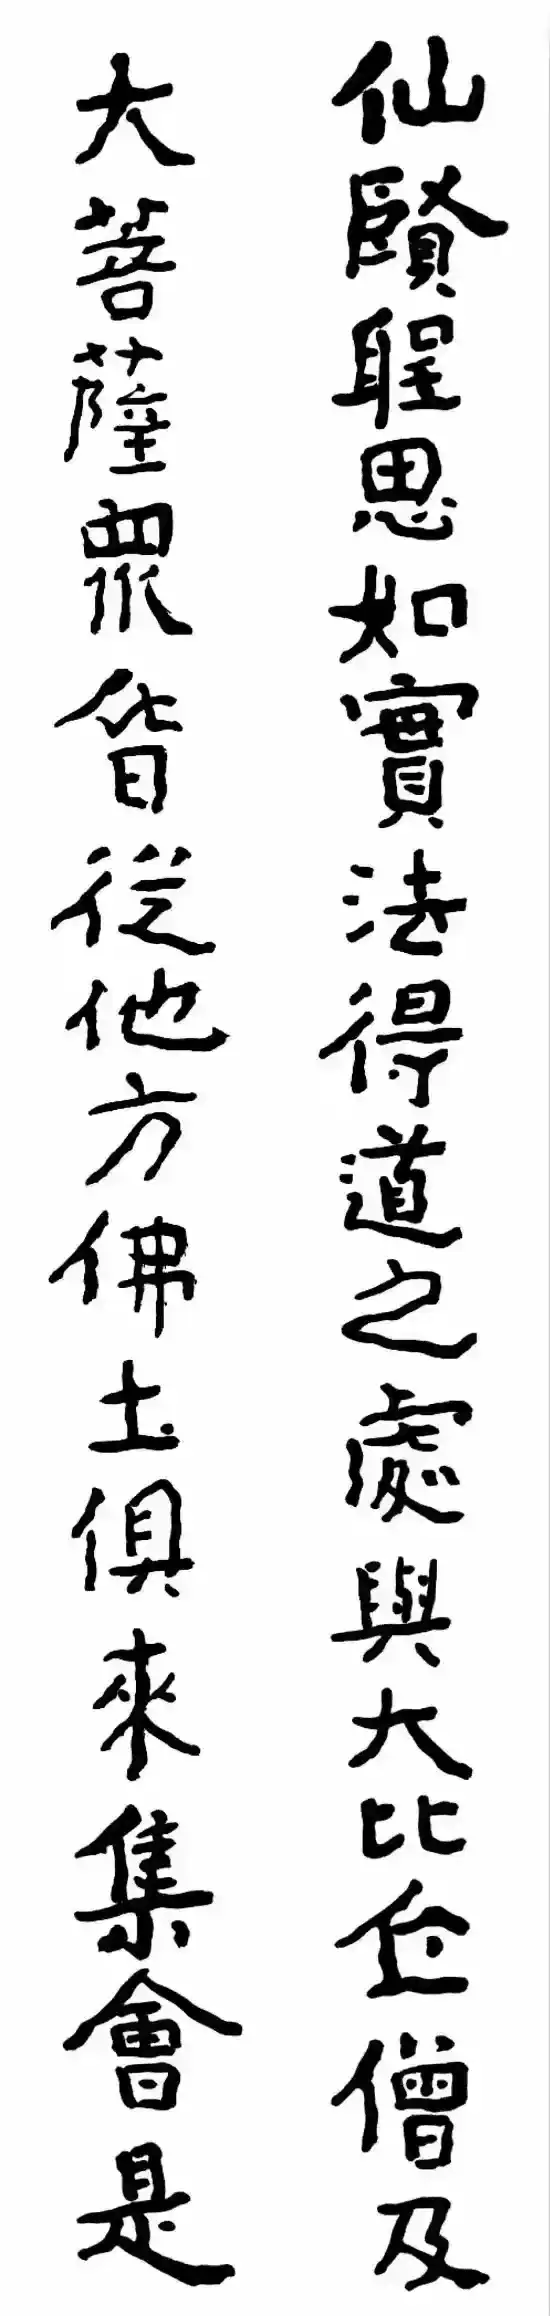 仙賢聖思如實法得道之處與大比丘僧及
大菩薩眾皆從他方佛土俱來集會是